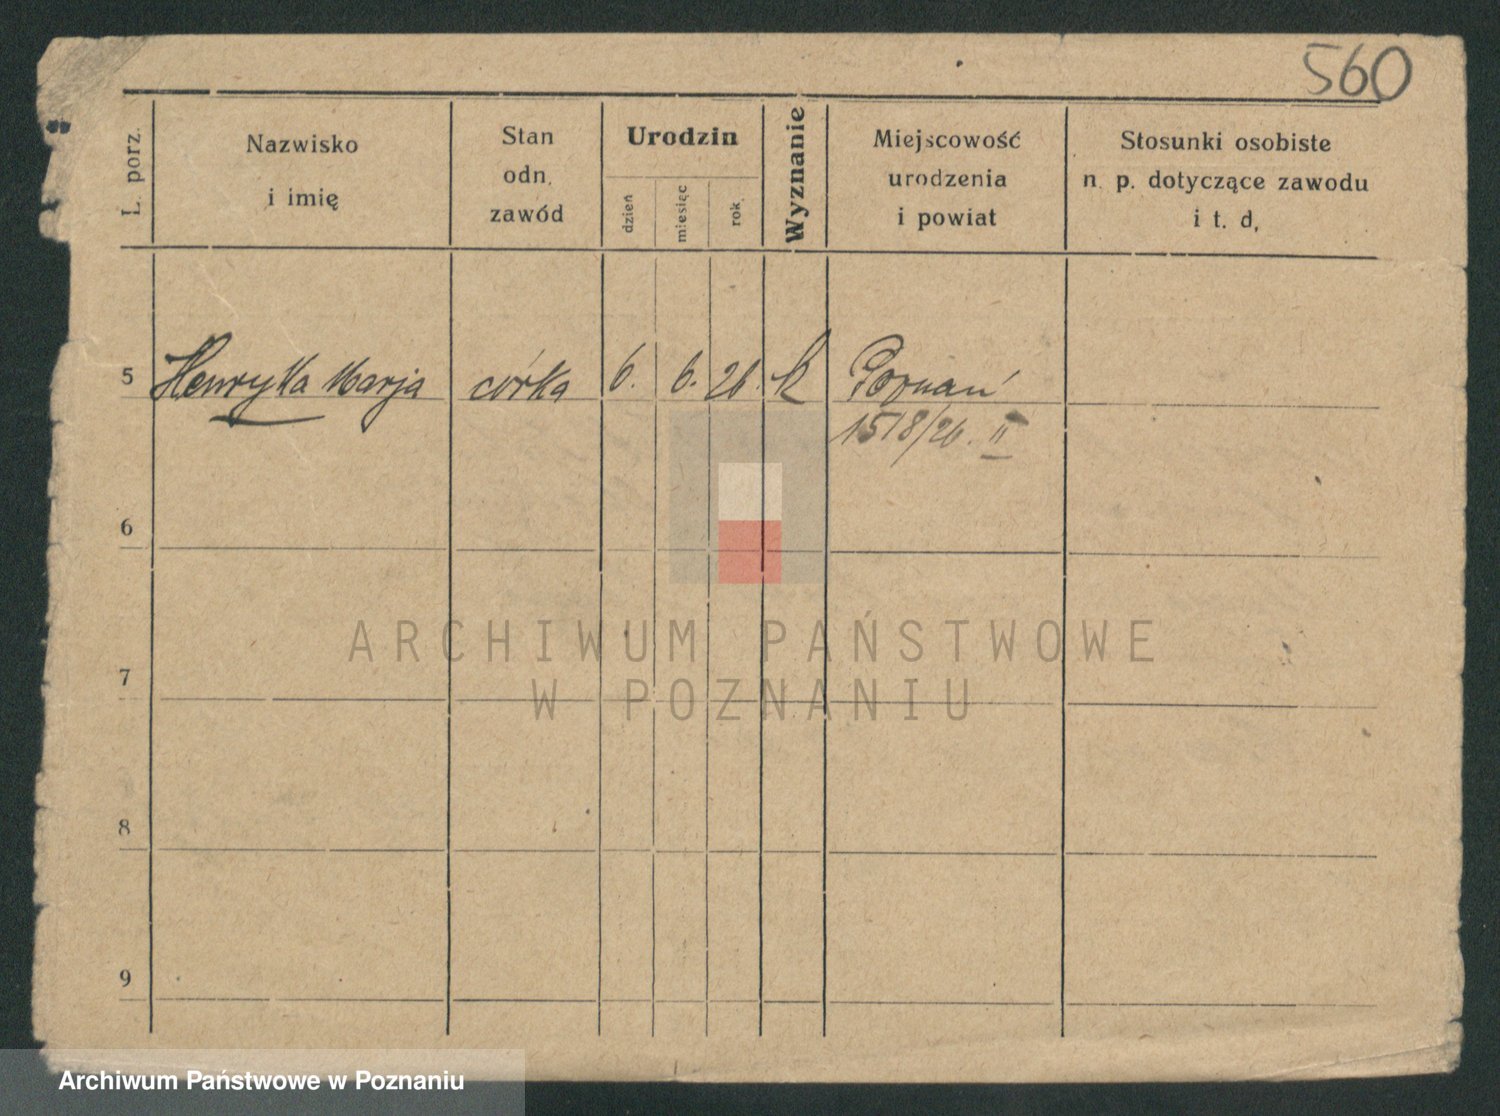 560
L. porz.
Nazwisko
i imię
Stan
odn.
zawód
Urodzin
dzień
miesięc
rok.
Wyznanie
Miejscowość
urodzenia
i powiat
Stosunki osobiste
n. p. dotyczące zawodu
i t. d.
5 Henryka Marja córka 6. 6. 26. k Poznań
1518/26. II
6
7
8
9
ARCHIWUM PAŃSTWOWE
W POZNANIU
Archiwum Państwowe w Poznaniu